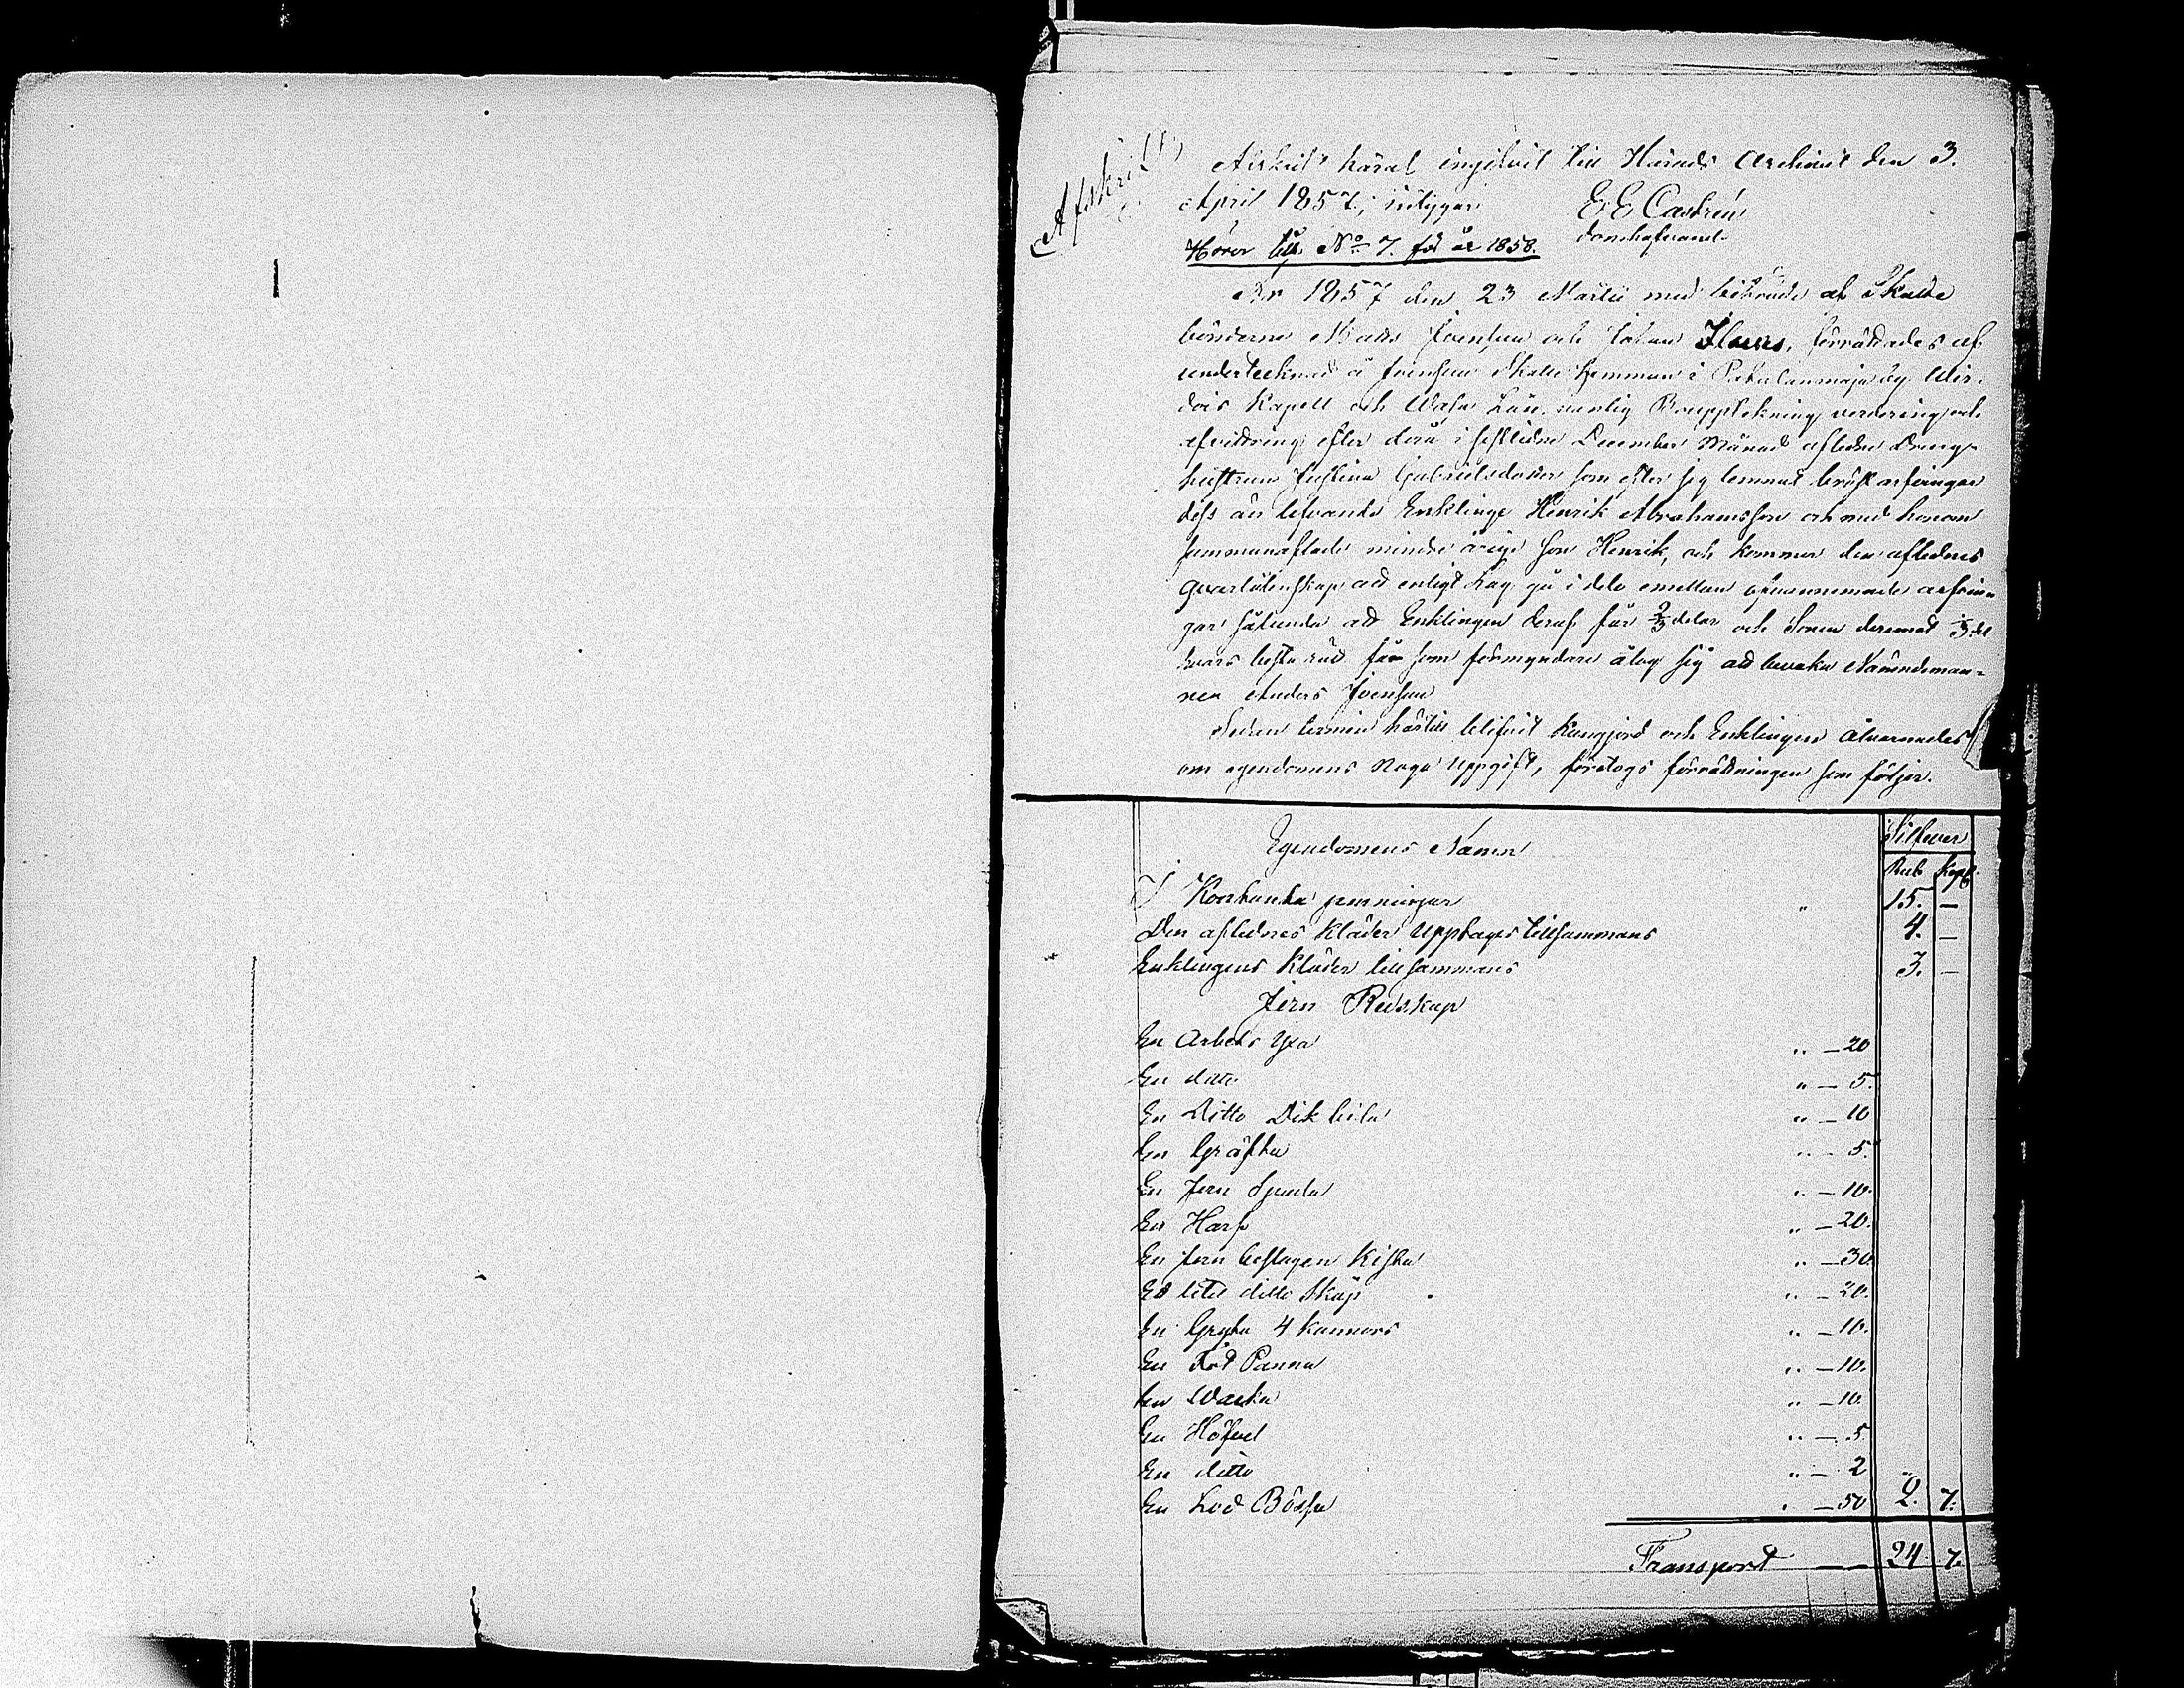 Afskrift
Afskrift häraf ingifvit till Härads Archivet den 3.
April 1857; intygar E E Castrén
domhafvand.
Hörer till No 7. för år 1858.
År 1857 den 23 Martii med biträde af Skatte
bönderne Matts Joensuu och Johan Ilvars, förrättades af
undertecknad å Joensuu Skatte hemman i Pakulanmaja by Wir-
dois Kapell och Wasa Län, vanlig Bouppteckning, värdering och
afvittring efter derå i sistlidne December Månad aflidne Dreng-
hustrun Justina Gabrielsdotter som efter sig lemnat bröst arfvingar
dess än lefvande Enklinge Henrik Abrahamsson och med honom
sammanaflade minderårige son Henrik, och kommer den aflidnes
qvarlåtenskap att enligt Lag gå i dela emellan ofvannemnde arfvin
gar sålunda att Enklingen deraf får 2/3 delar och Sonen deremot 1/3 del
hvars bästa råd för som förmyndare ålog sig att bevaka Nämndeman-
nen Anders Joensuu
Sedan termin härtill blifvit kungjord och Enklingen åtvarnades
om egendomens noga uppgift, företogs förrättningen som följer.
Egendomens Namn Silfver
Rub Kop
I Kontanta penningar " 15. —
Den aflidnes Kläder upptages tillsammans 4. —
Enklingens Kläder tillsammans 3. —
Jern Redskap
En Arbets Yxa " — 20
En ditto " — 5.
En Ditto Dik bila " — 10
En Gräfta " — 5.
En Jern Spada " — 10.
En Harf " — 20.
En Jern beslagen Kista " — 30.
Ett litet ditto Skåp " — 20.
En Gryta 4 kannors " — 10.
En Röd Panna " — 10.
En " — 10.
En Höfvel " — 5
En ditto " — 2
En Lod Bössa " — 50 2. 7.
Transport — — 24. 7.